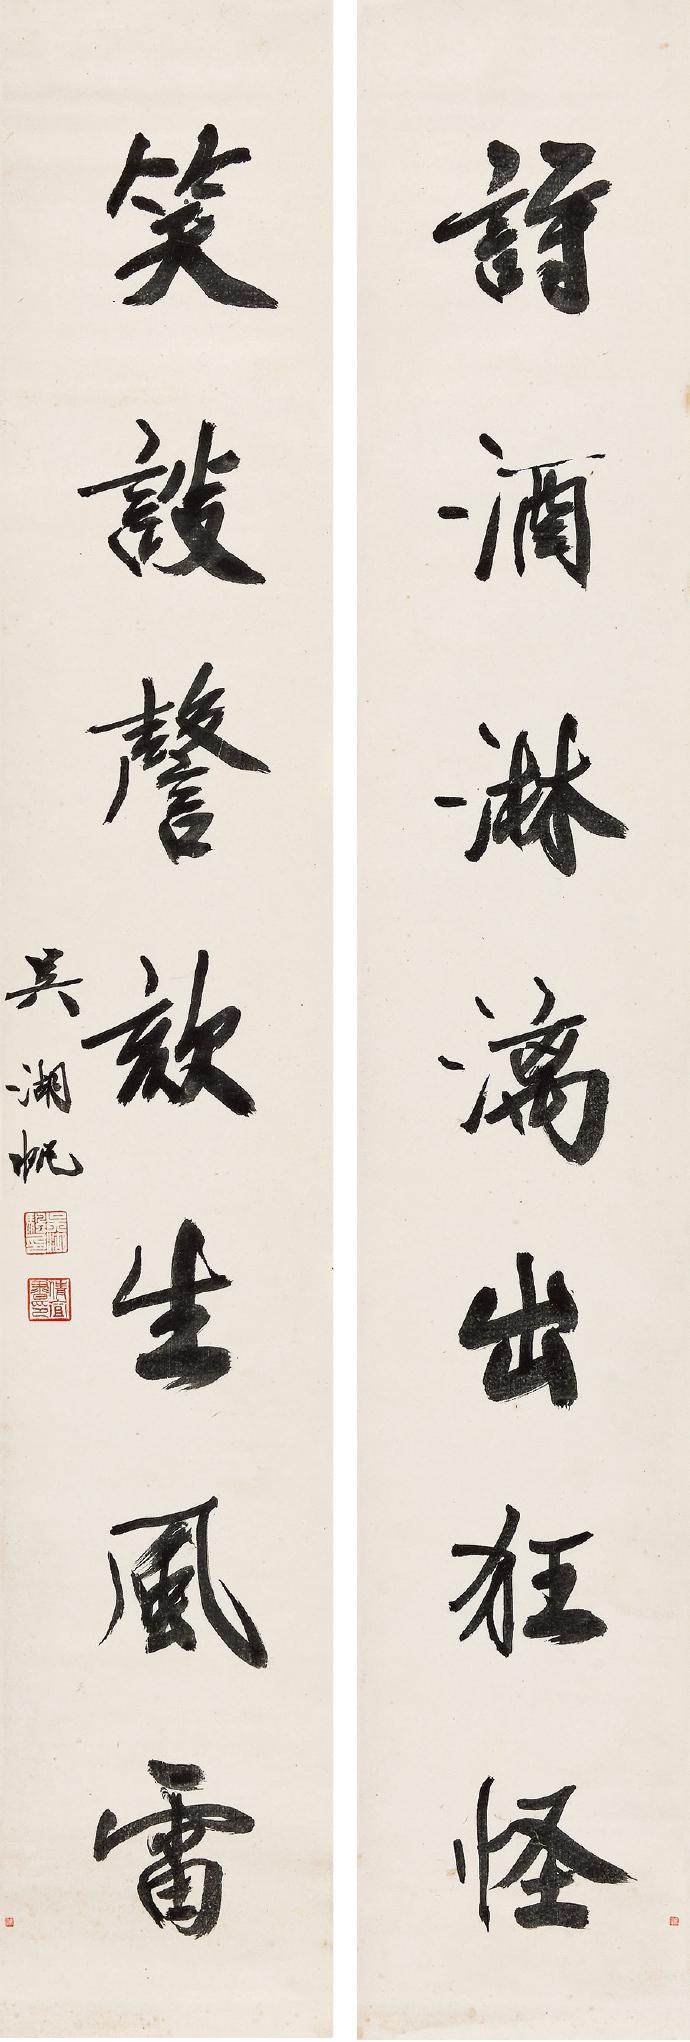 詩酒淋漓出狂怪
笑談謦欬生風雷
吴湖帆
吳湖颿印